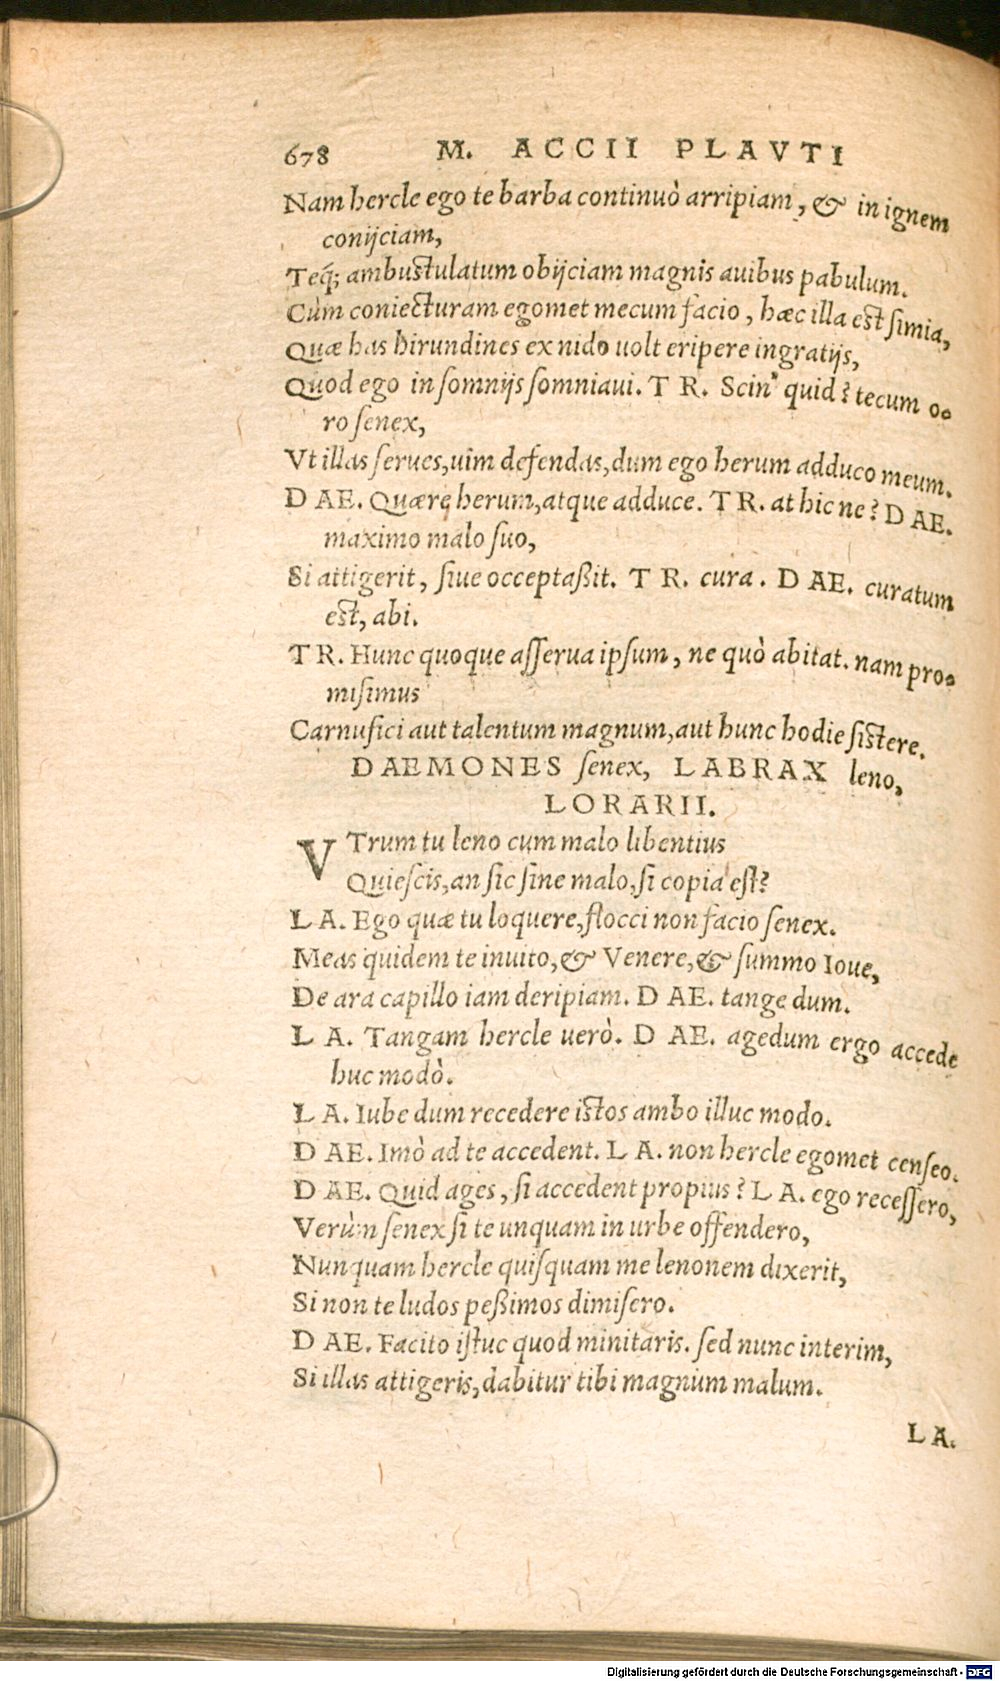 678 M. ACCII PLAVTI
Nam hercle ego te barba continuò arripiam, & in ignem
conijciam,
Teq́; ambustulatum obijciam magnis auibus pabulum.
Cùm coniecturam egomet mecum facio, hæc illa est ſimia,
Quæ has hirundines ex nido uolt eripere ingratijs,
Quod ego in ſomnijs ſomniaui. TR. Scin' quid? tecum o-
ro ſenex,
Vt illas ſerues, uim defendas, dum ego herum adduco meum.
DAE. Quære herum, atque adduce. TR. at hic ne? DAE.
maximo malo ſuo,
Si attigerit, ſiue occeptaßit. TR. cura. DAE. curatum
est, abi.
TR. Hunc quoque aſſerua ipſum, ne quò abitat. nam pro-
miſimus
Carnufici aut talentum magnum, aut hunc hodie ſistere.
DAEMONES ſenex, LABRAX leno,
LORARII.
VTrum tu leno cum malo libentius
Quieſcis, an ſic ſine malo, ſi copia eſt?
LA. Ego quæ tu loquere, flocci non facio ſenex.
Meas quidem te inuito, & Venere, & ſummo Ioue,
De ara capillo iam deripiam. DAE. tange dum.
LA. Tangam hercle uerò. DAE. agedum ergo accede
huc modò.
LA. Iube dum recedere istos ambo illuc modo.
DAE. Imò ad te accedent. LA. non hercle egomet cenſeo.
DAE. Quid ages, ſi accedent propius? LA. ego receſſero,
Verùm ſenex ſi te unquam in urbe offendero,
Nunquam hercle quiſquam me lenonem dixerit,
Si non te ludos peßimos dimiſero.
DAE. Facito iſtuc quod minitaris. ſed nunc interim,
Si illas attigeris, dabitur tibi magnum malum.
LA.
Digitalisierung gefördert durch die Deutsche Forschungsgemeinschaft - DFG